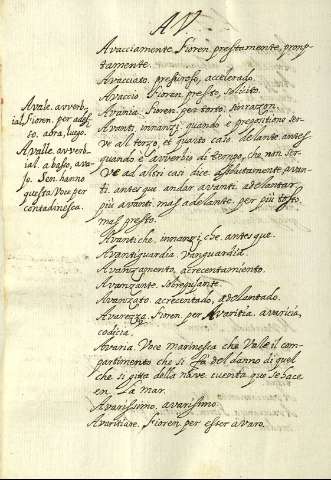 AV.
Avacciamente. Fioren. prestamente, promp
tamente.
Avacciato. presuroso, accelerado.
Avaccio. Fioren. presto, solicito.
Avania. Fioren. per torto, sinrazon.
Avanti, innanzi, quando è prepositione ser-
ve al terzo, et quarto caso. delante. antes
quando è avverbio di tempo, che non ser-
ve ad altri casi dice assolutamente avan-
ti. antes que andar avanti. adelantar
più avanti. mas adelante. per più tosto.
mas presto.
Avantiche, innanzi che. antes que.
Avantiguardia. Vanguardia.
Avanzamento. acrecentamiento.
Avanzante. sobrepujante.
Avanzato. acrecentado, adelantado.
Avarezza. Fioren. per Avaritia. avaricia,
codicia.
Avaria. Voce marinesca che vale il com-
partimento che si fa del danno di quel
che si gitta della nave. cuenta que se hace
en la mar.
Avarissimo. avarisimo.
Avaritiare. Fioren. per esser avaro.
Avale. avverb-
ial. Fioren. per ades
so. aora, luego.
Avalle. avverb-
ial. a basso, ava-
jo. Sen. hanno
questa Voce per
contadinesca.